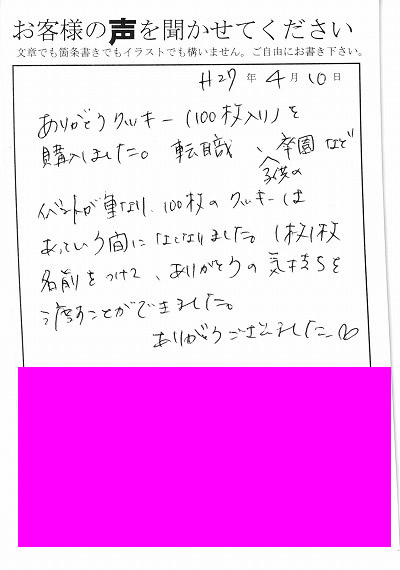 お客様の声を聞かせてください
文章でも箇条書きでもイラストでも構いません。ご自由にお書き下さい。
H27年4月10日
ありがとうクッキー(100枚入り)を
購入しました。転職、子供の卒園など
イベントが重なり、100枚のクッキーは
あっという間になくなりました。1枚1枚
名前をつけて、ありがとうの気持ちを
渡すことができました。
ありがとうございました